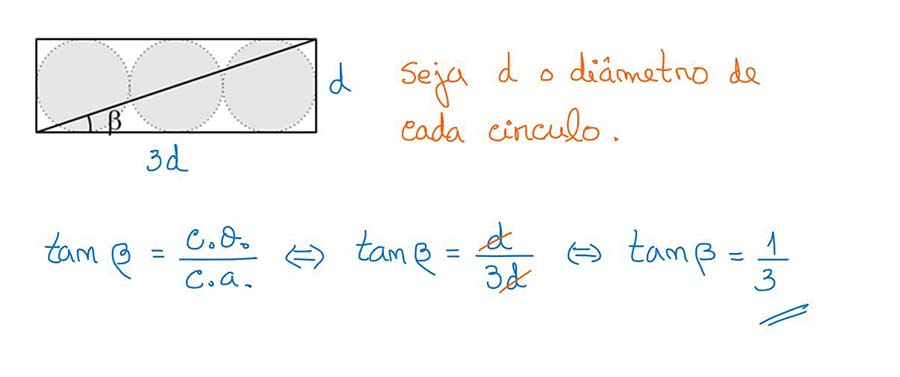 β
d
3d
Seja d o diâmetro de
cada círculo.
tan β = c.o. / c.a. ⇔ tan β = d / 3d ⇔ tan β = 1 / 3